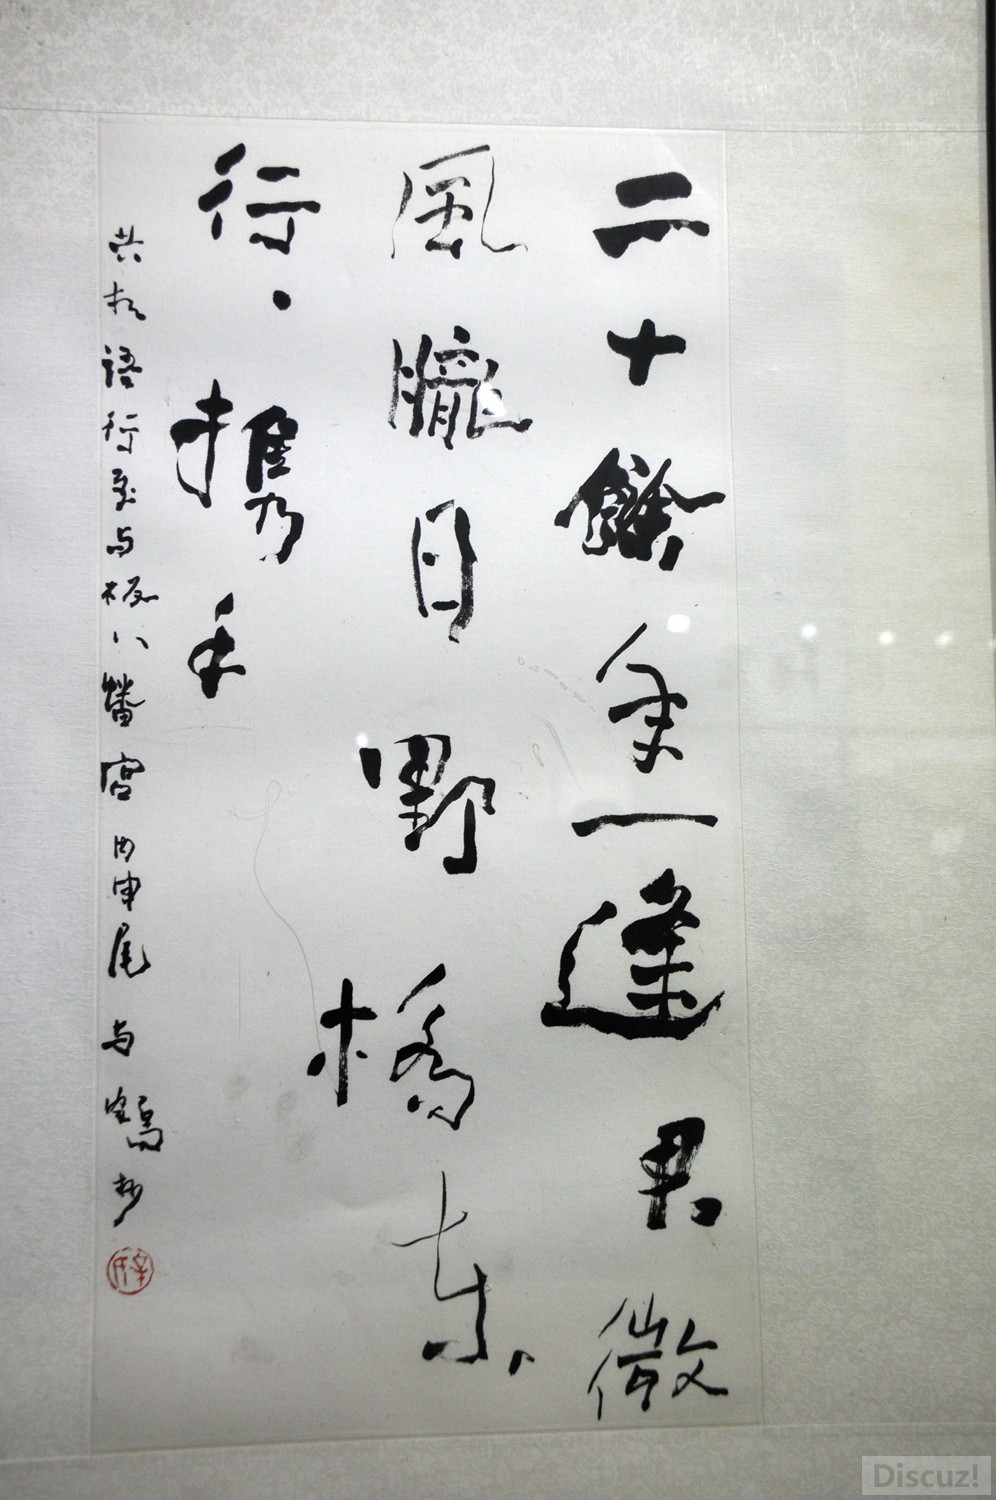 二十餘年一逢君微
風朧月野橋東
行携手
共攜語行至与板八幡宮丙申尾与鶴抄
Discuz!